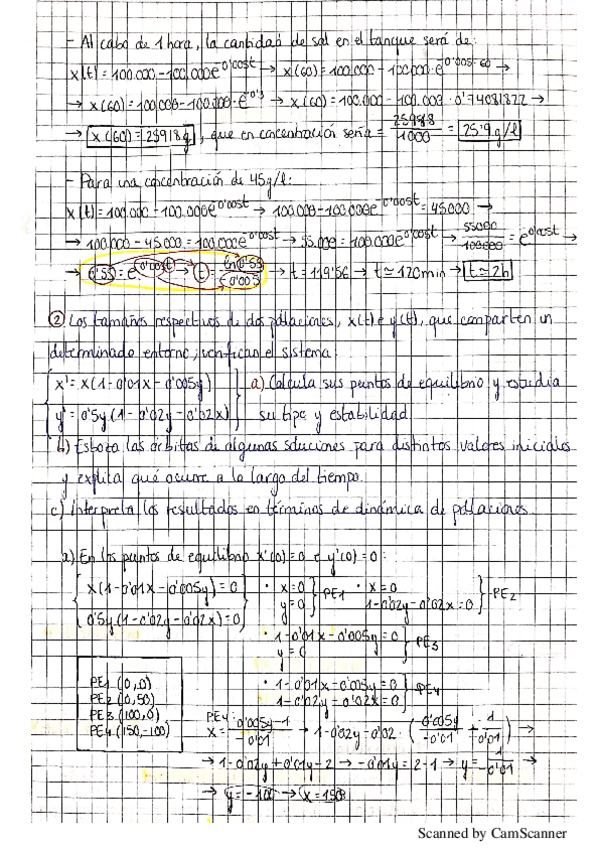 - Al cabo de 1 hora, la cantidad de sal en el tanque será de:
x(t) = 100.000 - 100.000e^0'005t → x(60) = 100.000 - 100.000·e^0'005·60 →
→ x(60) = 100.000 - 100.000·e^-0'3 → x(60) = 100.000 - 100.000·0'74081822 →
→ x(60) = 25918g, que en concentración sería = 25918/1000 = 25'9 g/l
- Para una concentración de 45g/l:
x(t) = 100.000 - 100.000e^0'005t → 100.000 - 100.000e^-0'005t = 45000 →
→ 100.000 - 45.000 = 100.000e^0'005t → 55.000 = 100.000e^0'005t → 55000/100.000 = e^0'005t →
→ 0'55 = e^0'005t → t = ln0'55/-0'005 → t = 119'56 → t ≃ 120min → t ≃ 2h
② Los tamaños respectivos de dos poblaciones, x(t) e y(t), que comparten un
determinado entorno, verifican el sistema
x' = x(1 - 0'01x - 0'005y) a) Calcula sus puntos de equilibrio y estudia
y' = 0'5y(1 - 0'02y - 0'02x) su tipo y estabilidad
b) Esboza las órbitas de algunas soluciones para distintos valores iniciales
y explica qué ocurre a lo largo del tiempo.
c) Interpreta los resultados en términos de dinámica de poblaciones.
a) En los puntos de equilibrio x'(0) = 0 e y'(0) = 0:
x(1 - 0'01x - 0'005y) = 0 · x = 0 · x = 0
0'5y(1 - 0'02y - 0'02x) = 0 y = 0 } PE1 1 - 0'02y - 0'02x = 0 } PE2
· 1 - 0'01x - 0'005y = 0
y = 0 } PE3
PE1 (0,0) · 1 - 0'01x - 0'005y = 0
PE2 (0,50) 1 - 0'02y - 0'02x = 0 } PE4
PE3 (100,0)
PE4 (150,-100) PE4: x = 0'005y - 1/-0'01 → 1 - 0'02y - 0'02·(0'005y/-0'01 + 1/0'01) →
→ 1 - 0'02y + 0'01y - 2 → -0'01y = 2 - 1 → y = 1/-0'01 →
→ y = -100 → x = 150
Scanned by CamScanner